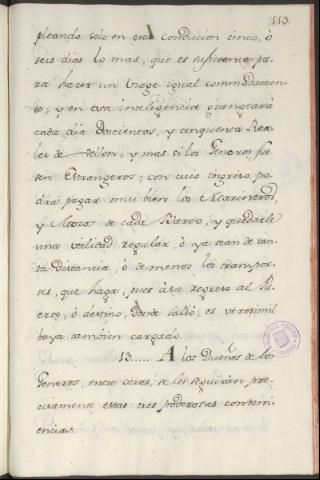 113
pleando solo en esta Condicion cinco, ó
seis dias lo mas, que es suficiente pa
ra hazer un viage igual commodamen
te; y en esta inteligencia grangeará
cada dia Doscientos, y cinquenta Rea
les de Vellon, y mas si los Generos, fue
sen Estrangeros; con cuio ingreso po
drá pagar mui bien los Marineros,
y Mozos de cada Barco, y quedarle
una utilidad regular, ó ya sean de tan
ta distancia, ó de menos los transpor-
tes, que haga, pues á su regreso al Pu
erto, ó destino, donde salió, es verosimil
baya tambien cargado.
13..... A los Dueños de los
Generos, entre otras, se les seguirán pre-
cisamente estas tres poderosas conbeni
encias.